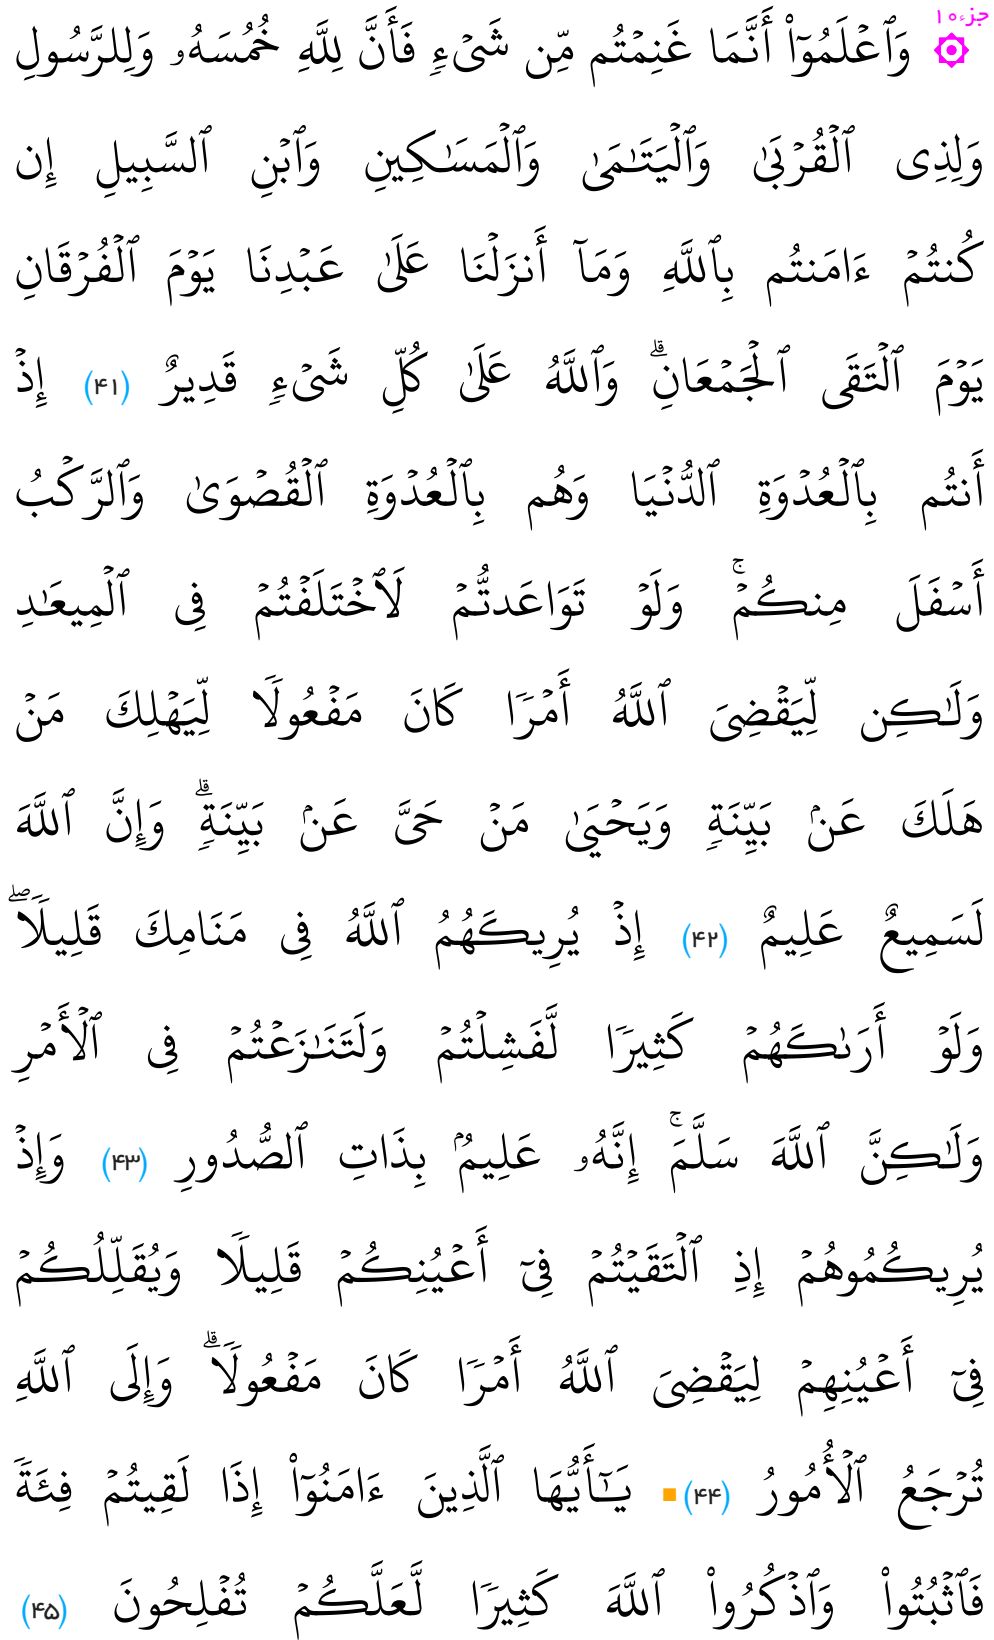 جزء۱۰
۞ وَٱعۡلَمُوٓاْ أَنَّمَا غَنِمۡتُم مِّن شَيۡءٖ فَأَنَّ لِلَّهِ خُمُسَهُۥ وَلِلرَّسُولِ
وَلِذِي ٱلۡقُرۡبَىٰ وَٱلۡيَتَٰمَىٰ وَٱلۡمَسَٰكِينِ وَٱبۡنِ ٱلسَّبِيلِ إِن
كُنتُمۡ ءَامَنتُم بِٱللَّهِ وَمَآ أَنزَلۡنَا عَلَىٰ عَبۡدِنَا يَوۡمَ ٱلۡفُرۡقَانِ
يَوۡمَ ٱلۡتَقَى ٱلۡجَمۡعَانِۗ وَٱللَّهُ عَلَىٰ كُلِّ شَيۡءٖ قَدِيرٌ (۴۱) إِذۡ
أَنتُم بِٱلۡعُدۡوَةِ ٱلدُّنۡيَا وَهُم بِٱلۡعُدۡوَةِ ٱلۡقُصۡوَىٰ وَٱلرَّكۡبُ
أَسۡفَلَ مِنكُمۡۚ وَلَوۡ تَوَاعَدتُّمۡ لَٱخۡتَلَفۡتُمۡ فِي ٱلۡمِيعَٰدِ
وَلَٰكِن لِّيَقۡضِيَ ٱللَّهُ أَمۡرٗا كَانَ مَفۡعُولٗا لِّيَهۡلِكَ مَنۡ
هَلَكَ عَنۢ بَيِّنَةٖ وَيَحۡيَىٰ مَنۡ حَيَّ عَنۢ بَيِّنَةٖۗ وَإِنَّ ٱللَّهَ
لَسَمِيعٌ عَلِيمٌ (۴۲) إِذۡ يُرِيكَهُمُ ٱللَّهُ فِي مَنَامِكَ قَلِيلٗاۖ
وَلَوۡ أَرَىٰكَهُمۡ كَثِيرٗا لَّفَشِلۡتُمۡ وَلَتَنَٰزَعۡتُمۡ فِي ٱلۡأَمۡرِ
وَلَٰكِنَّ ٱللَّهَ سَلَّمَۚ إِنَّهُۥ عَلِيمُۢ بِذَاتِ ٱلصُّدُورِ (۴۳) وَإِذۡ
يُرِيكُمُوهُمۡ إِذِ ٱلۡتَقَيۡتُمۡ فِيٓ أَعۡيُنِكُمۡ قَلِيلٗا وَيُقَلِّلُكُمۡ
فِيٓ أَعۡيُنِهِمۡ لِيَقۡضِيَ ٱللَّهُ أَمۡرٗا كَانَ مَفۡعُولٗاۗ وَإِلَى ٱللَّهِ
تُرۡجَعُ ٱلۡأُمُورُ (۴۴) يَٰٓأَيُّهَا ٱلَّذِينَ ءَامَنُوٓاْ إِذَا لَقِيتُمۡ فِئَةٗ
فَٱثۡبُتُواْ وَٱذۡكُرُواْ ٱللَّهَ كَثِيرٗا لَّعَلَّكُمۡ تُفۡلِحُونَ (۴۵)